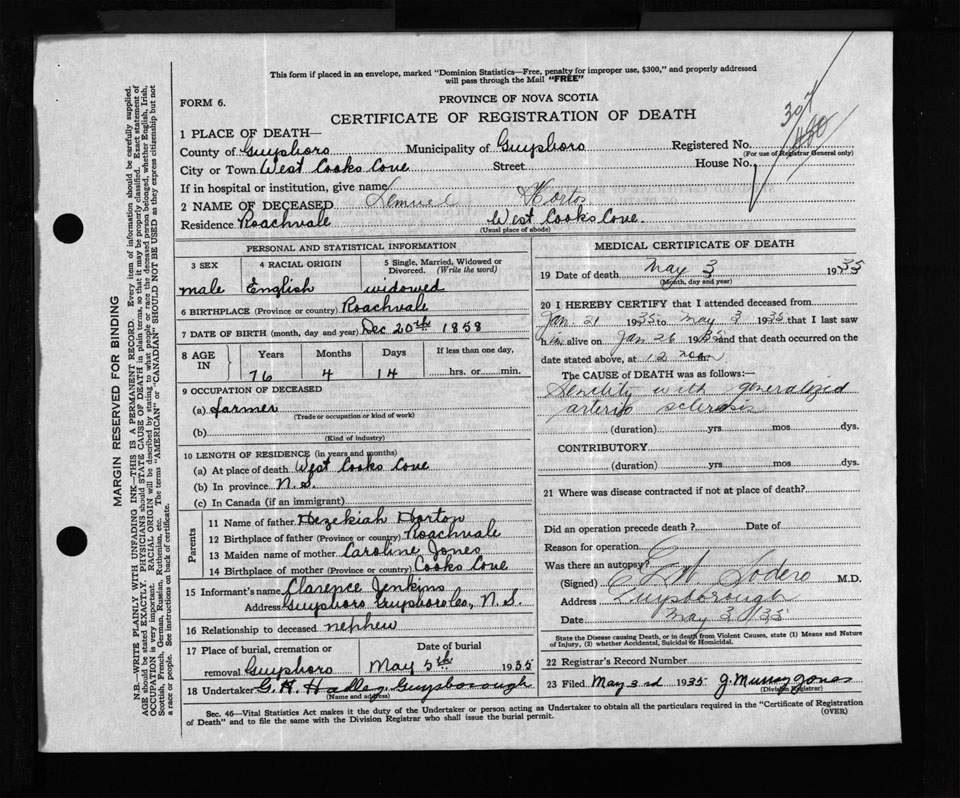 This form if placed in an envelope, marked "Dominion Statistics—Free, penalty for improper use, $300," and properly addressed
will pass through the Mail "FREE"
FORM 6.
PROVINCE OF NOVA SCOTIA
CERTIFICATE OF REGISTRATION OF DEATH
307
480
1 PLACE OF DEATH—
County of Guysboro Municipality of Guysboro Registered No.
(For use of Registrar General only)
City or Town West Cooks Cove Street House No.
If in hospital or institution, give name
2 NAME OF DECEASED Lemuel Horton
Residence Roachvale West Cooks Cove.
(Usual place of abode)
PERSONAL AND STATISTICAL INFORMATION
3 SEX 4 RACIAL ORIGIN 5 Single, Married, Widowed or Divorced. (Write the word)
male English widowed
6 BIRTHPLACE (Province or country) Roachvale
7 DATE OF BIRTH (month, day and year) Dec 20th 1858
8 AGE IN Years Months Days If less than one day,
76 4 14 hrs. or min.
9 OCCUPATION OF DECEASED
(a) farmer
(Trade or occupation or kind of work)
(b)
(Kind of industry)
10 LENGTH OF RESIDENCE (in years and months)
(a) At place of death West Cooks Cove
(b) In province N.S.
(c) In Canada (if an immigrant)
Parents
11 Name of father Hezekiah Horton
12 Birthplace of father (Province or country) Roachvale
13 Maiden name of mother Caroline Jones
14 Birthplace of mother (Province or Country) Cooks Cove
15 Informant's name Clarence Jenkins
Address Guysboro Guysboro Co., N.S.
16 Relationship to deceased nephew
17 Place of burial, cremation or Date of burial
removal Guysboro May 5th 1935
18 Undertaker G. H. Hadley Guysborough
(Name and address)
MEDICAL CERTIFICATE OF DEATH
19 Date of death May 3 1935
(Month, day and year)
20 I HEREBY CERTIFY that I attended deceased from
Jan 21 1935 to May 3 1935 that I last saw
him alive on Jan 26 1935 and that death occurred on the
date stated above, at 12 noon
The CAUSE of DEATH was as follows:—
Senility with generalized
arterio sclerosis
(duration) yrs. mos. dys.
CONTRIBUTORY.
(duration) yrs. mos. dys.
21 Where was disease contracted if not at place of death?
Did an operation precede death? Date of
Reason for operation
Was there an autopsy?
(Signed) Sodero M.D.
Address Guysborough
Date May 3/35
State the Disease causing Death, or in death from Violent Causes, state (1) Means and Nature
of Injury, (2) whether Accidental, Suicidal or Homicidal.
22 Registrar's Record Number
23 Filed May 3rd 1935 J. Murray Jones
(Division Registrar)
Sec. 46—Vital Statistics Act makes it the duty of the Undertaker or person acting as Undertaker to obtain all the particulars required in the "Certificate of Registration
of Death" and to file the same with the Division Registrar who shall issue the burial permit.
(OVER)
MARGIN RESERVED FOR BINDING
N.B.—WRITE PLAINLY WITH UNFADING INK—THIS IS A PERMANENT RECORD. Every item of information should be carefully supplied.
AGE should be stated EXACTLY. PHYSICIANS should STATE CAUSE OF DEATH in plain terms, so that it may be properly classified. Exact statement of
OCCUPATION is very important. RACIAL ORIGIN will be described by stating to what people or race the deceased person belonged, whether English, Irish,
Scottish, French, German, Russian, Ruthenian, etc. The terms "AMERICAN" or "CANADIAN" SHOULD NOT BE USED as they express citizenship but not
a race or people. See instructions on back of certificate.